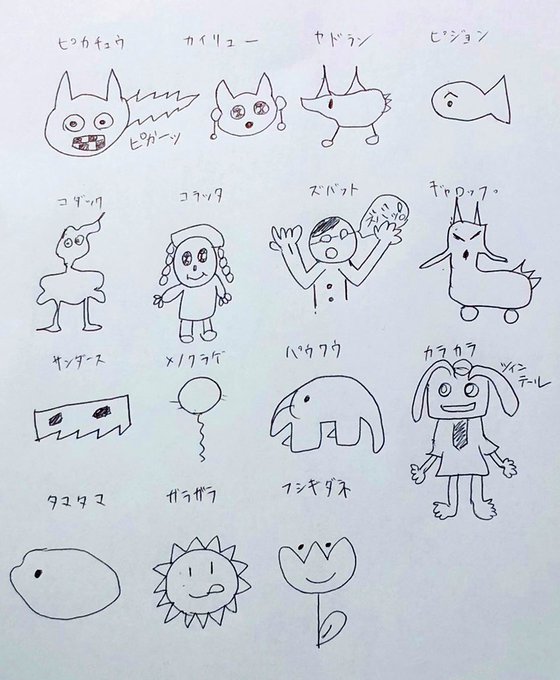 ピカチュウ
カイリュー
ヤドラン
ピジョン
ピガーッ
コダック
コラッタ
ズバット
ギャロップ。
ズバッ。
サンダース
メノクラゲ
パウワウ
カラカラ
ツイン
テール
タマタマ
ガラガラ
フシギダネ